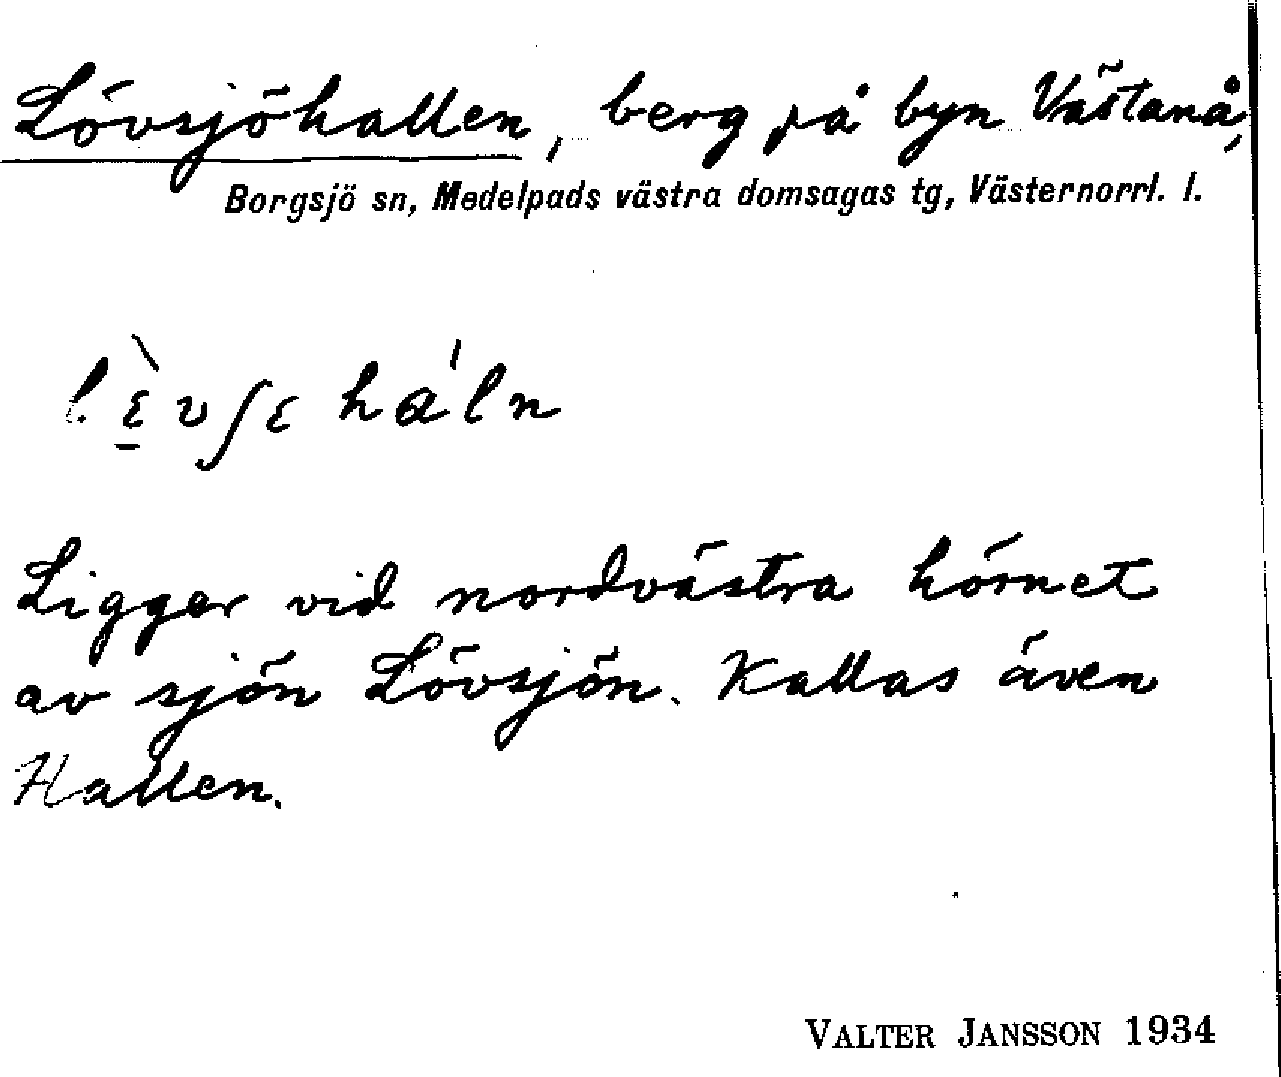 Lövsjöhallen, berg på byn Västanå,
Borgsjö sn, Medelpads västra domsagas tg, Västernorrl. l.
lɛ̱̀vʃɛ ha'ln
Ligger vid nordvästra hörnet
av sjön Lövsjön. Kallas även
Hallen.
VALTER JANSSON 1934